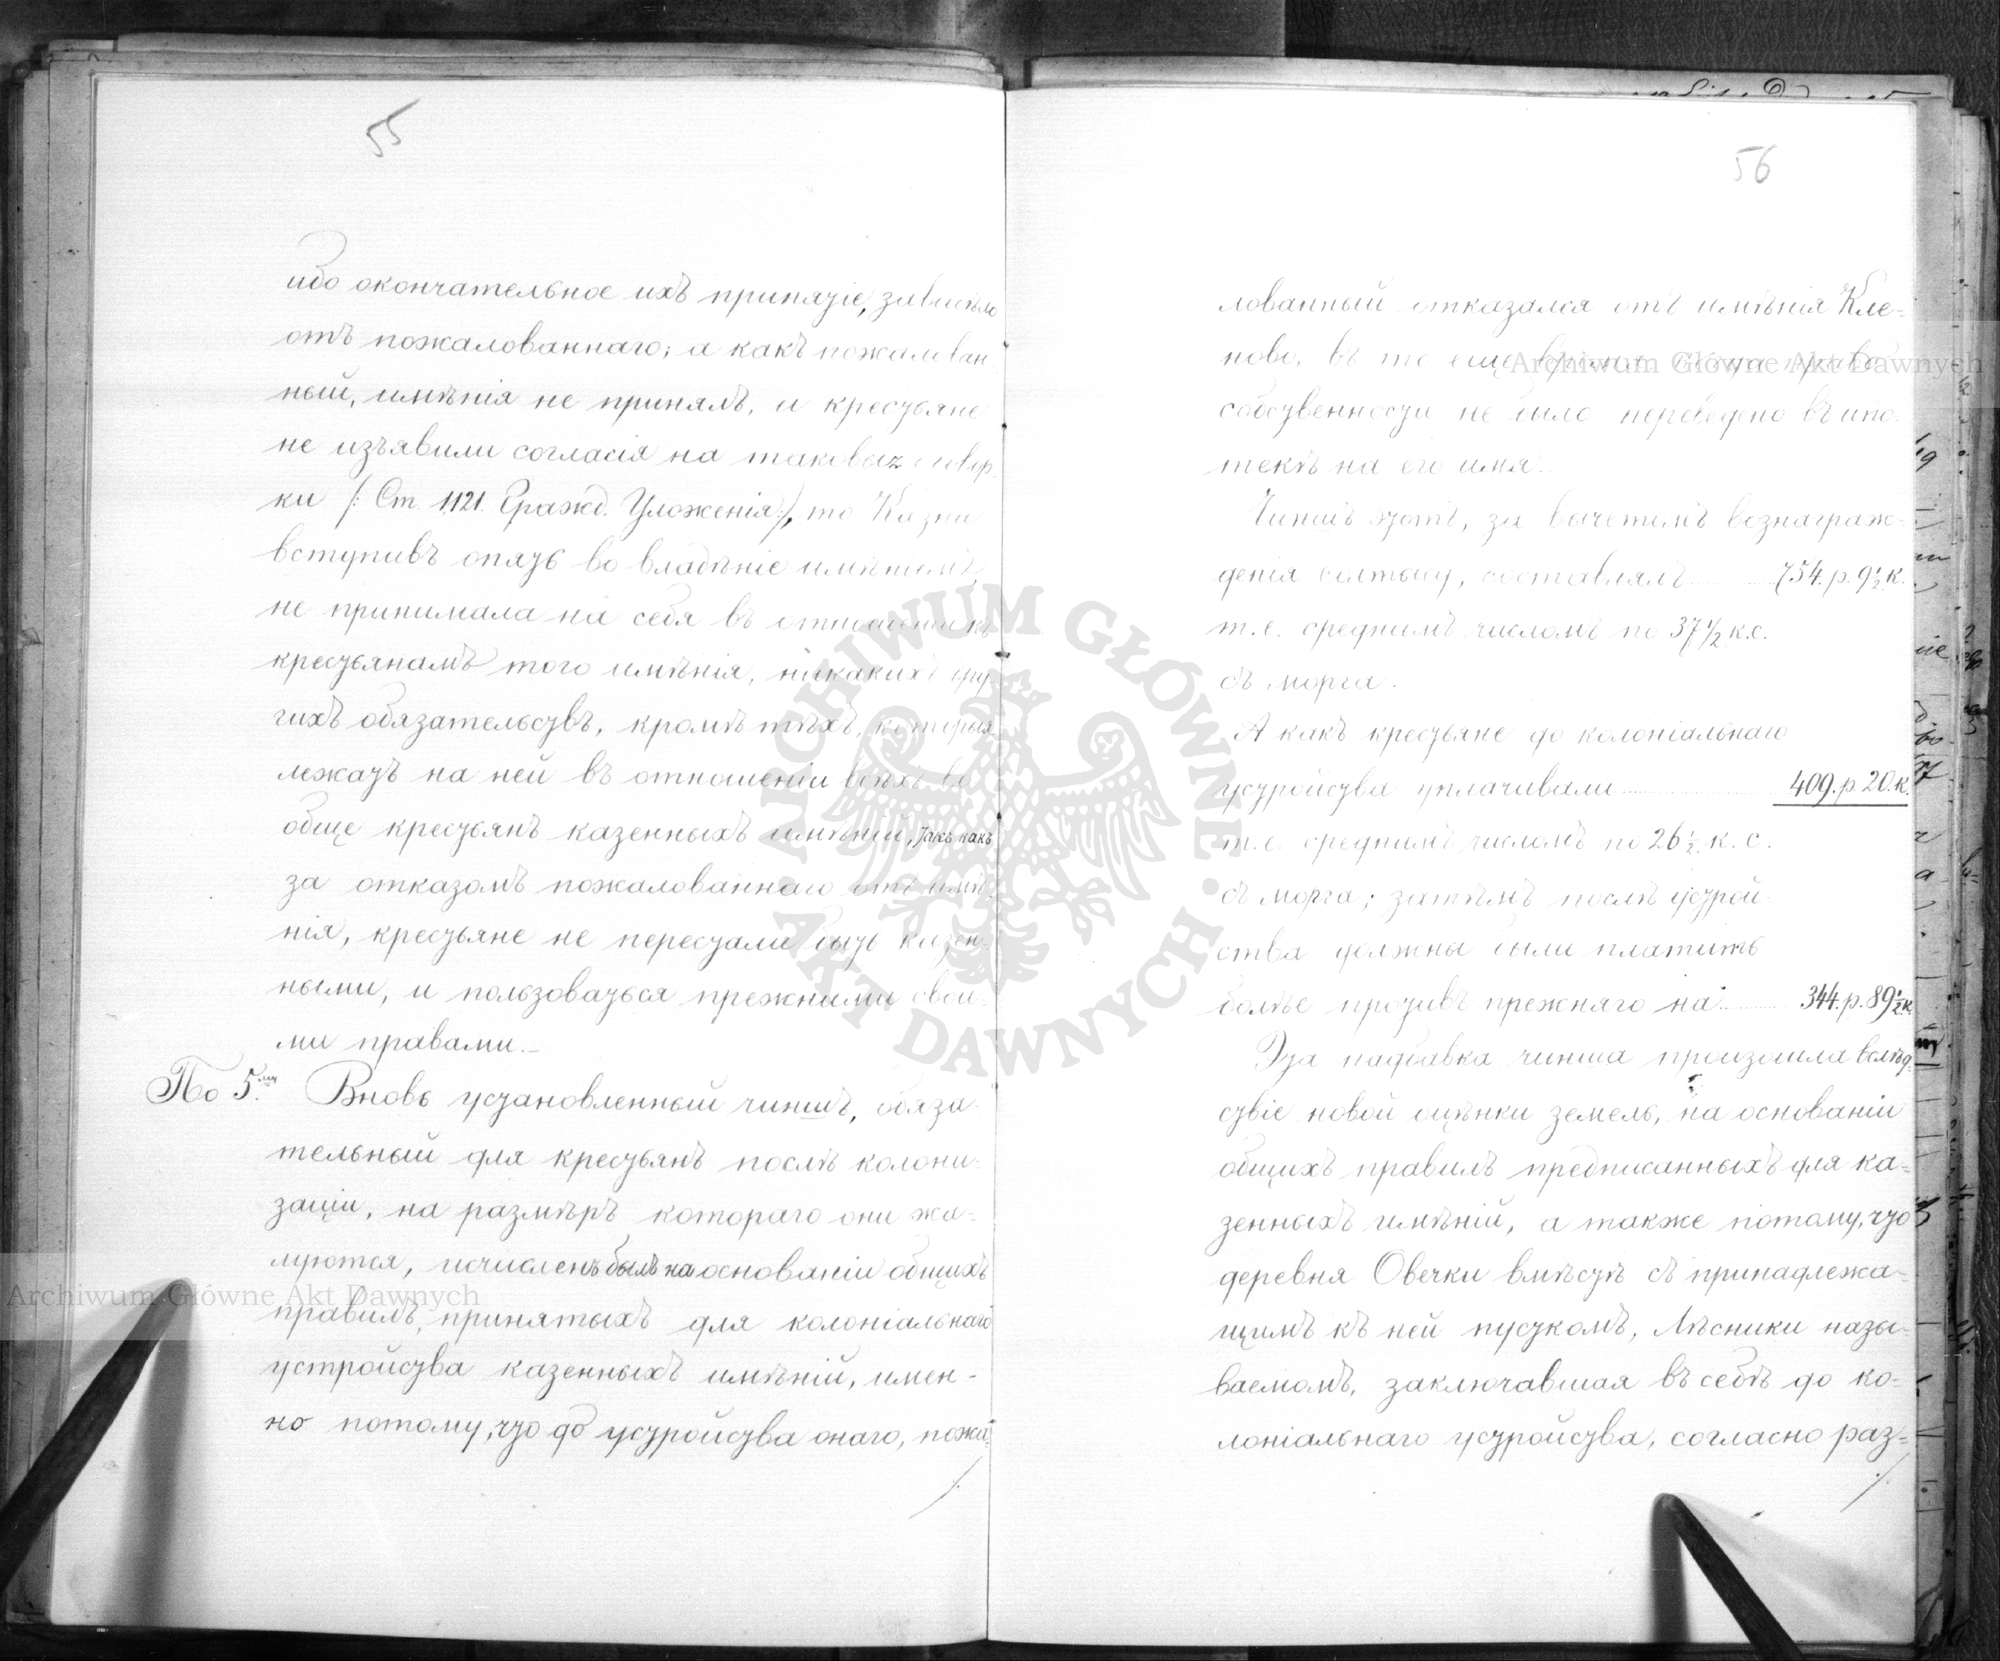 55
ибо окончательное ихъ принятіе, зависѣло
отъ пожалованнаго; а какъ пожалован-
ный, имѣнія не принялъ, и крестьяне
не изъявили согласія на таковыя оговор-
ки /: Ст. 1121. Гражд. Уложенія :/, то Казна
вступивъ опять во владѣніе имѣніемъ,
не принимала на себя въ отношеніи къ
крестьянамъ того имѣнія, никакихъ дру-
гихъ обязательствъ, кромѣ тѣхъ, которыя
лежатъ на ней въ отношеніи всѣхъ во-
обще крестьянъ казенныхъ имѣній, такъ какъ
за отказомъ пожалованнаго отъ имѣ-
нія, крестьяне не перестали быть казен-
ными, и пользоваться прежними свои-
ми правами.
По 5.му Вновь установленный чиншъ, обяза-
тельный для крестьянъ послѣ колони-
заціи, на размѣръ котораго они жа-
луются, исчисленъ былъ на основаніи общихъ
правилъ, принятыхъ для колоніальнаго
устройства казенныхъ имѣній, имен-
но потому, что до устройства онаго, пожа-
./.
56
лованный отказался отъ имѣнія Кле-
ново, въ то еще время, когда право
собственности не было переведено въ ипо-
текѣ на его имя.
Чиншъ этотъ, за вычетомъ вознаграж-
денія солтысу, составлялъ 754. р. 9½ к.
т. е. среднимъ числомъ по 37½ к. с.
съ морга.
А какъ крестьяне до колоніальнаго
устройства уплачивали 409. р. 20. к.
т. е. среднимъ числомъ по 26½ к. с.
съ морга; затѣмъ послѣ устрой-
ства должны были платить
болѣе противъ прежняго на 344. р. 89½ к.
Эта надбавка чинша произошла вслѣд-
ствіе новой оцѣнки земель, на основаніи
общихъ правилъ предписанныхъ для ка-
зенныхъ имѣній, а также потому, что
деревня Овечки вмѣстѣ съ принадлежа-
щимъ къ ней пусткомъ, Лѣсники назы-
ваемомъ, заключавшая въ себѣ до ко-
лоніальнаго устройства, согласно раз-
./.
Archiwum Główne Akt Dawnych
Archiwum Główne Akt Dawnych
ARCHIWUM GŁÓWNE AKT DAWNYCH